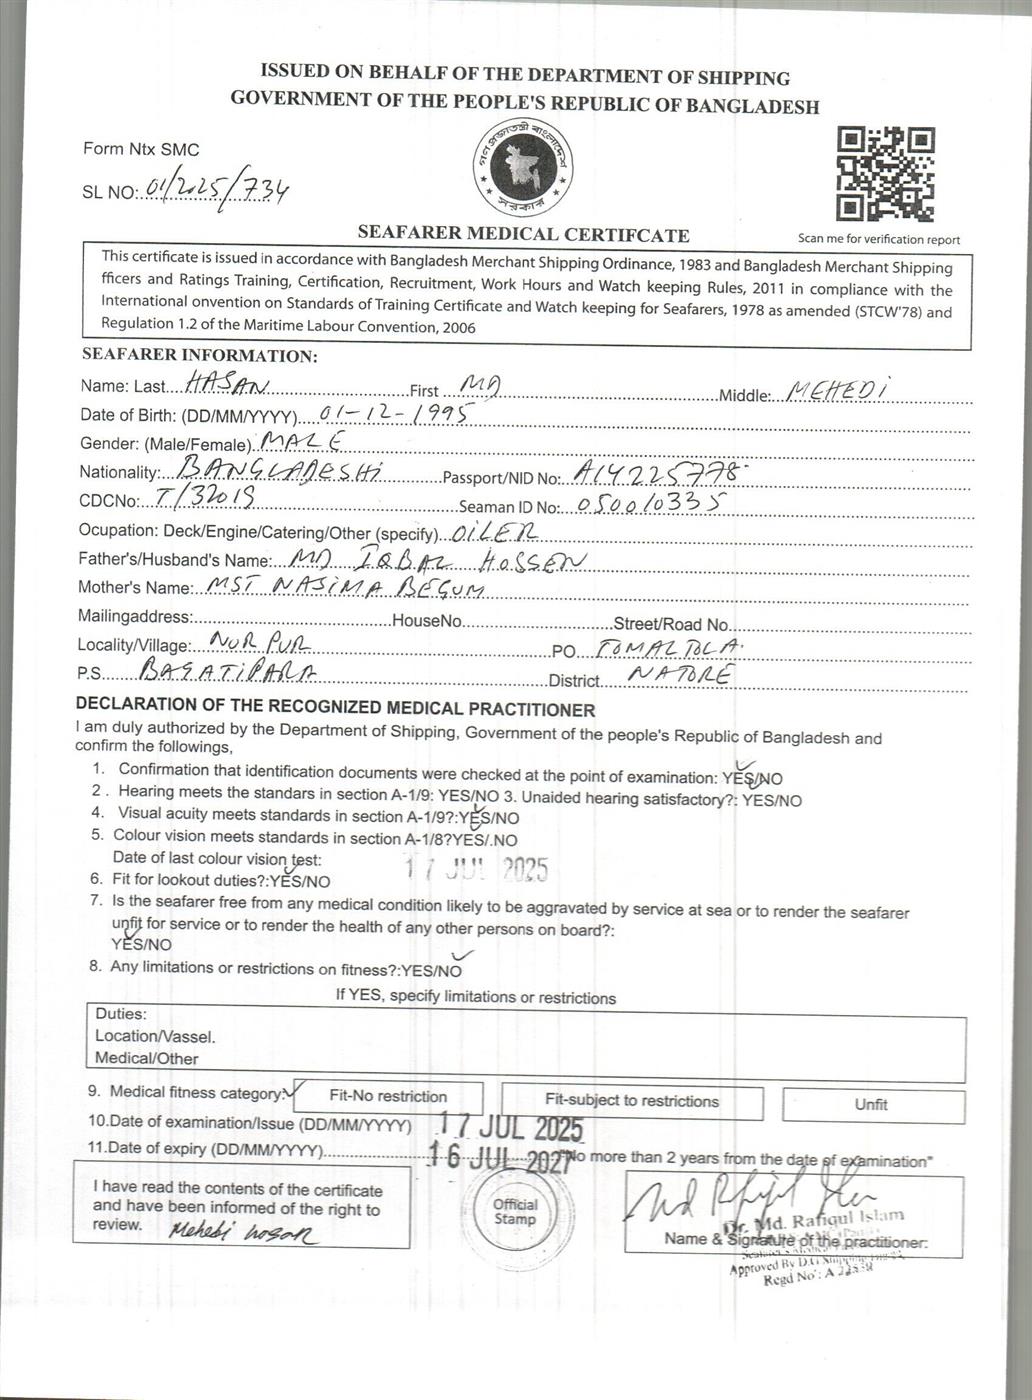 ISSUED ON BEHALF OF THE DEPARTMENT OF SHIPPING
GOVERNMENT OF THE PEOPLE'S REPUBLIC OF BANGLADESH
Form Ntx SMC
SL NO:01/2025/734
গণপ্রজাতন্ত্রী বাংলাদেশ
সরকার
SEAFARER MEDICAL CERTIFCATE
Scan me for verification report
This certificate is issued in accordance with Bangladesh Merchant Shipping Ordinance, 1983 and Bangladesh Merchant Shipping
fficers and Ratings Training, Certification, Recruitment, Work Hours and Watch keeping Rules, 2011 in compliance with the
International onvention on Standards of Training Certificate and Watch keeping for Seafarers, 1978 as amended (STCW'78) and
Regulation 1.2 of the Maritime Labour Convention, 2006
SEAFARER INFORMATION:
Name: Last....HASAN....First....MD....Middle:...MEHEDI
Date of Birth: (DD/MM/YYYY)....01-12-1995
Gender: (Male/Female).MALE
Nationality:...BANGLADESHi....Passport/NID No:...A14225778
CDCNo:...T/32019....Seaman ID No:...050010335
Ocupation: Deck/Engine/Catering/Other (specify)...OILER
Father's/Husband's Name:...MD IQBAL HOSSEN
Mother's Name:...MST NASIMA BEGUM
Mailingaddress:....HouseNo....Street/Road No....
Locality/Village:...NURPUR....PO...TOMALTOLA.
P.S....BAGATIPARA....District....NATORE
DECLARATION OF THE RECOGNIZED MEDICAL PRACTITIONER
I am duly authorized by the Department of Shipping, Government of the people's Republic of Bangladesh and
confirm the followings,
1. Confirmation that identification documents were checked at the point of examination: YES/NO
2 . Hearing meets the standars in section A-1/9: YES/NO 3. Unaided hearing satisfactory?: YES/NO
4. Visual acuity meets standards in section A-1/9?:YES/NO
5. Colour vision meets standards in section A-1/8?YES/.NO
Date of last colour vision test: 17 JUL 2025
6. Fit for lookout duties?:YES/NO
7. Is the seafarer free from any medical condition likely to be aggravated by service at sea or to render the seafarer
unfit for service or to render the health of any other persons on board?:
YES/NO
8. Any limitations or restrictions on fitness?:YES/NO
If YES, specify limitations or restrictions
Duties:
Location/Vassel.
Medical/Other
9. Medical fitness category: Fit-No restriction Fit-subject to restrictions Unfit
10.Date of examination/Issue (DD/MM/YYYY) 17 JUL 2025
11.Date of expiry (DD/MM/YYYY)....16 JUL 2027 "No more than 2 years from the date of examination"
I have read the contents of the certificate
and have been informed of the right to
review. Mehedi hasan
Official
Stamp
Dr. Md. Rafiqul Islam
Name & Signature of the practitioner:
Approved By D.G Shipping
Regd No : A